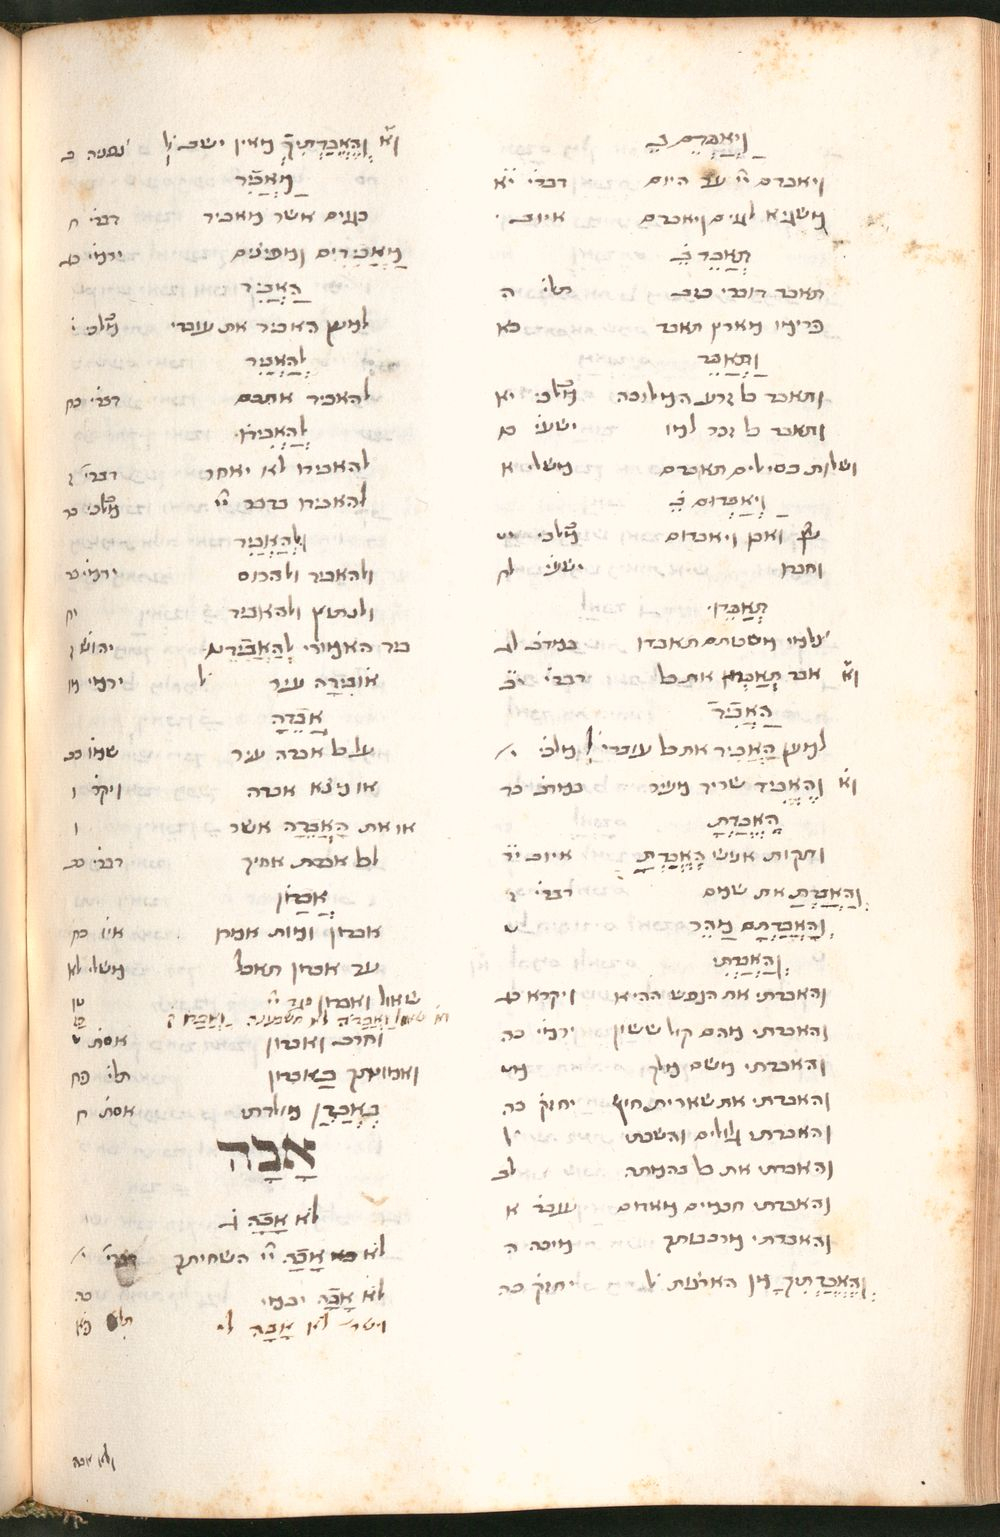 וַיְאַבְּדֵם ב
ויאבדם יי עד היום דברי יא
משגיא לגוים ויאבדם איוב
תְּאַבֵּד ב
תאבד דוברי כזב תלי ה
פרימו מארץ תאבד כא
וַתְּאַבֵּד
ותאבד כל זרע הממלכה מלכי יא
ותאבד כל זכר למו ישעי
ושלות כסילים תאבדם משלי א
וַיְאַבְּדוּם ב
עץ ואבן ויאבדום מלכי יט
וחברו ישעי לז
תְּאַבְּדוּ
צלמי מסכתם תאבדו במדב לג
וא אבד תְּאַבְּדוּן את כל דברי יב
הַאֲבִיד
למען הַאֲבִיד את כל עובדי ל מלכי י
וא וְהֶאֱבִיד שריד מעיר במדב כד
הֶאֱבַדְתָּ
ותקות אנוש הֶאֱבַדְתָּ איוב יד
וְהַאֲבַדְתָּ את שמם דברי ז
וְהַאֲבַדְתָּם מַהֵר ט
וְהַאֲבַדְתִּי
והאבדתי את הנפש ההיא ויקרא כג
והאבדתי מהם קול ששון ירמי כה
והאבדתי משם מלך מט
והאבדתי את שארית חוף יחזק כה
והאבדתי גלולים והשבתי ל
והאבדתי את כל בהמתה לב
והאבדתי חכמים מאדום עובד א
והאבדתי מרכבתך מיכה ה
וְהַאֲבַדְתִּיךָ מן הארצות ל יחזק כה
וא וְהַאֲבַדְתִּיךְ מאין יושב ל צפניה ב
מַאֲבִיד
כגוים אשר מאביד דברי ח
מַאֲבִידִים ומפיצים ירמי כג
הַאֲבִיד
למען האביד את עובדי מלכי י
לְהַאֲבִיד
להאביד אתכם דברי כח
לְהַאֲבִידוֹ
להאבידו לא יאחר דברי ז
להאבידו כדבר יי מלכי כד
וּלְהַאֲבִיד
ולהאביד ולהרוס ירמי
ולנתוץ ולהאביד יח
ביד האמורי לְהַאֲבִידֵנוּ יהוש ז
אוֹבִידָה עיר ל ירמי מו
אֲבֵדָה
על כל אבדה עיר שמו כב
או מצא אבדה ויקר ו
או את הָאֲבֵדָה אשר ו
לכל אבדת אחיך דברי כב
אֲבַדּוֹן
אבדון ומות אמרו איו כח
עד אבדון תאכל משלי לא
שאול ואבדון נגד יי טו
וא שאול וַאֲבַדֹּה לא תשבענה וַאֲבַדּוֹ ק
וחרב ואבדון אסת ט
ואמונתך בָּאֲבַדּוֹן תלי פח
בְּאָבְדַן מולדתי אסת ח
אָבָה
לא אָבָה ג
לא אָבָה יי השחיתך דברי י
לא אָבָה יבמי כה
וישר׳ לא אָבָה לי תלי פא
ולא אבה